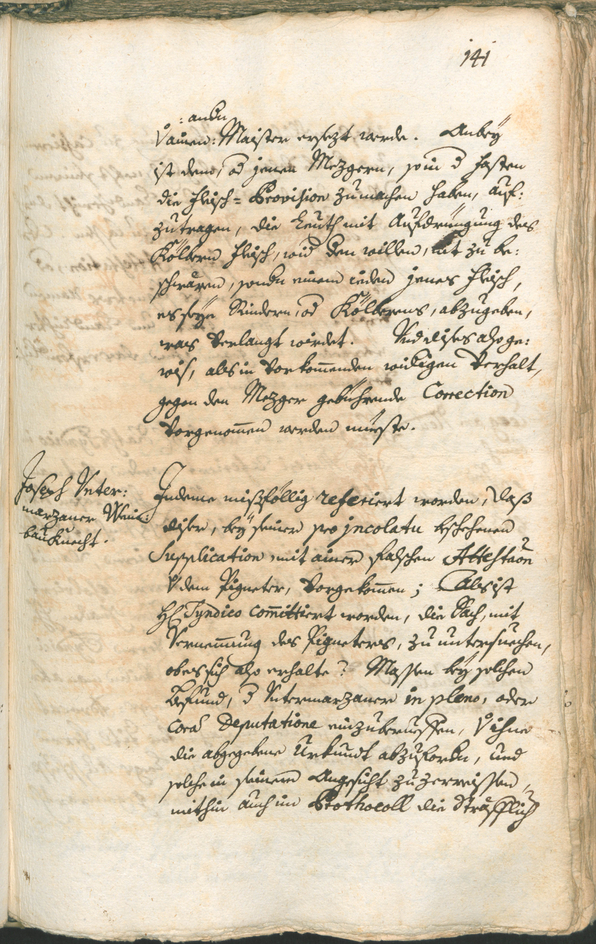 141
: andn
Vamen: Maister ersezt werde. Anbey
ist denen, od jenen Mezgern, so in d fasten
die fleisch= Provision zumachen haben, auf:
zutragen, die Leuth mit Aufdringung des
Kölbern fleisch, wid den willen, nit zu be:
schwären, sondn einem ieden jenes fleisch,
es seye Rindern, od Kölberns, abzugeben,
was verlangt wirdet. Und dises also ge:
wis, als in vorkommenden widrigen verhalt,
gegen den Mezger gebührende Correction
vorgenommen werden müeste.
Joseph Unter:
marzaner Wein:
bauKnecht.
Indeme mißföllig referiert worden, daß
diser, bey seiner pro incolatu bschehenen
Supplication mit ainer falschen Attestaon
V dem Pigneter, vorgekommen; Als ist
H: Syndico committiert worden, die Sach, mit
Vernemmung des Pigneters, zu untersuechen,
ob es sich also erhalte? Massen bey solchen
Befund, d Untermarzaner in pleno, oder
cora Deputatione einzuberueffen, V ihme
die abgegebene Urkundt abzufordn, und
solche in seinem Angesicht zuzerreissen,
mithin auch im Prothocoll die Sträfflich